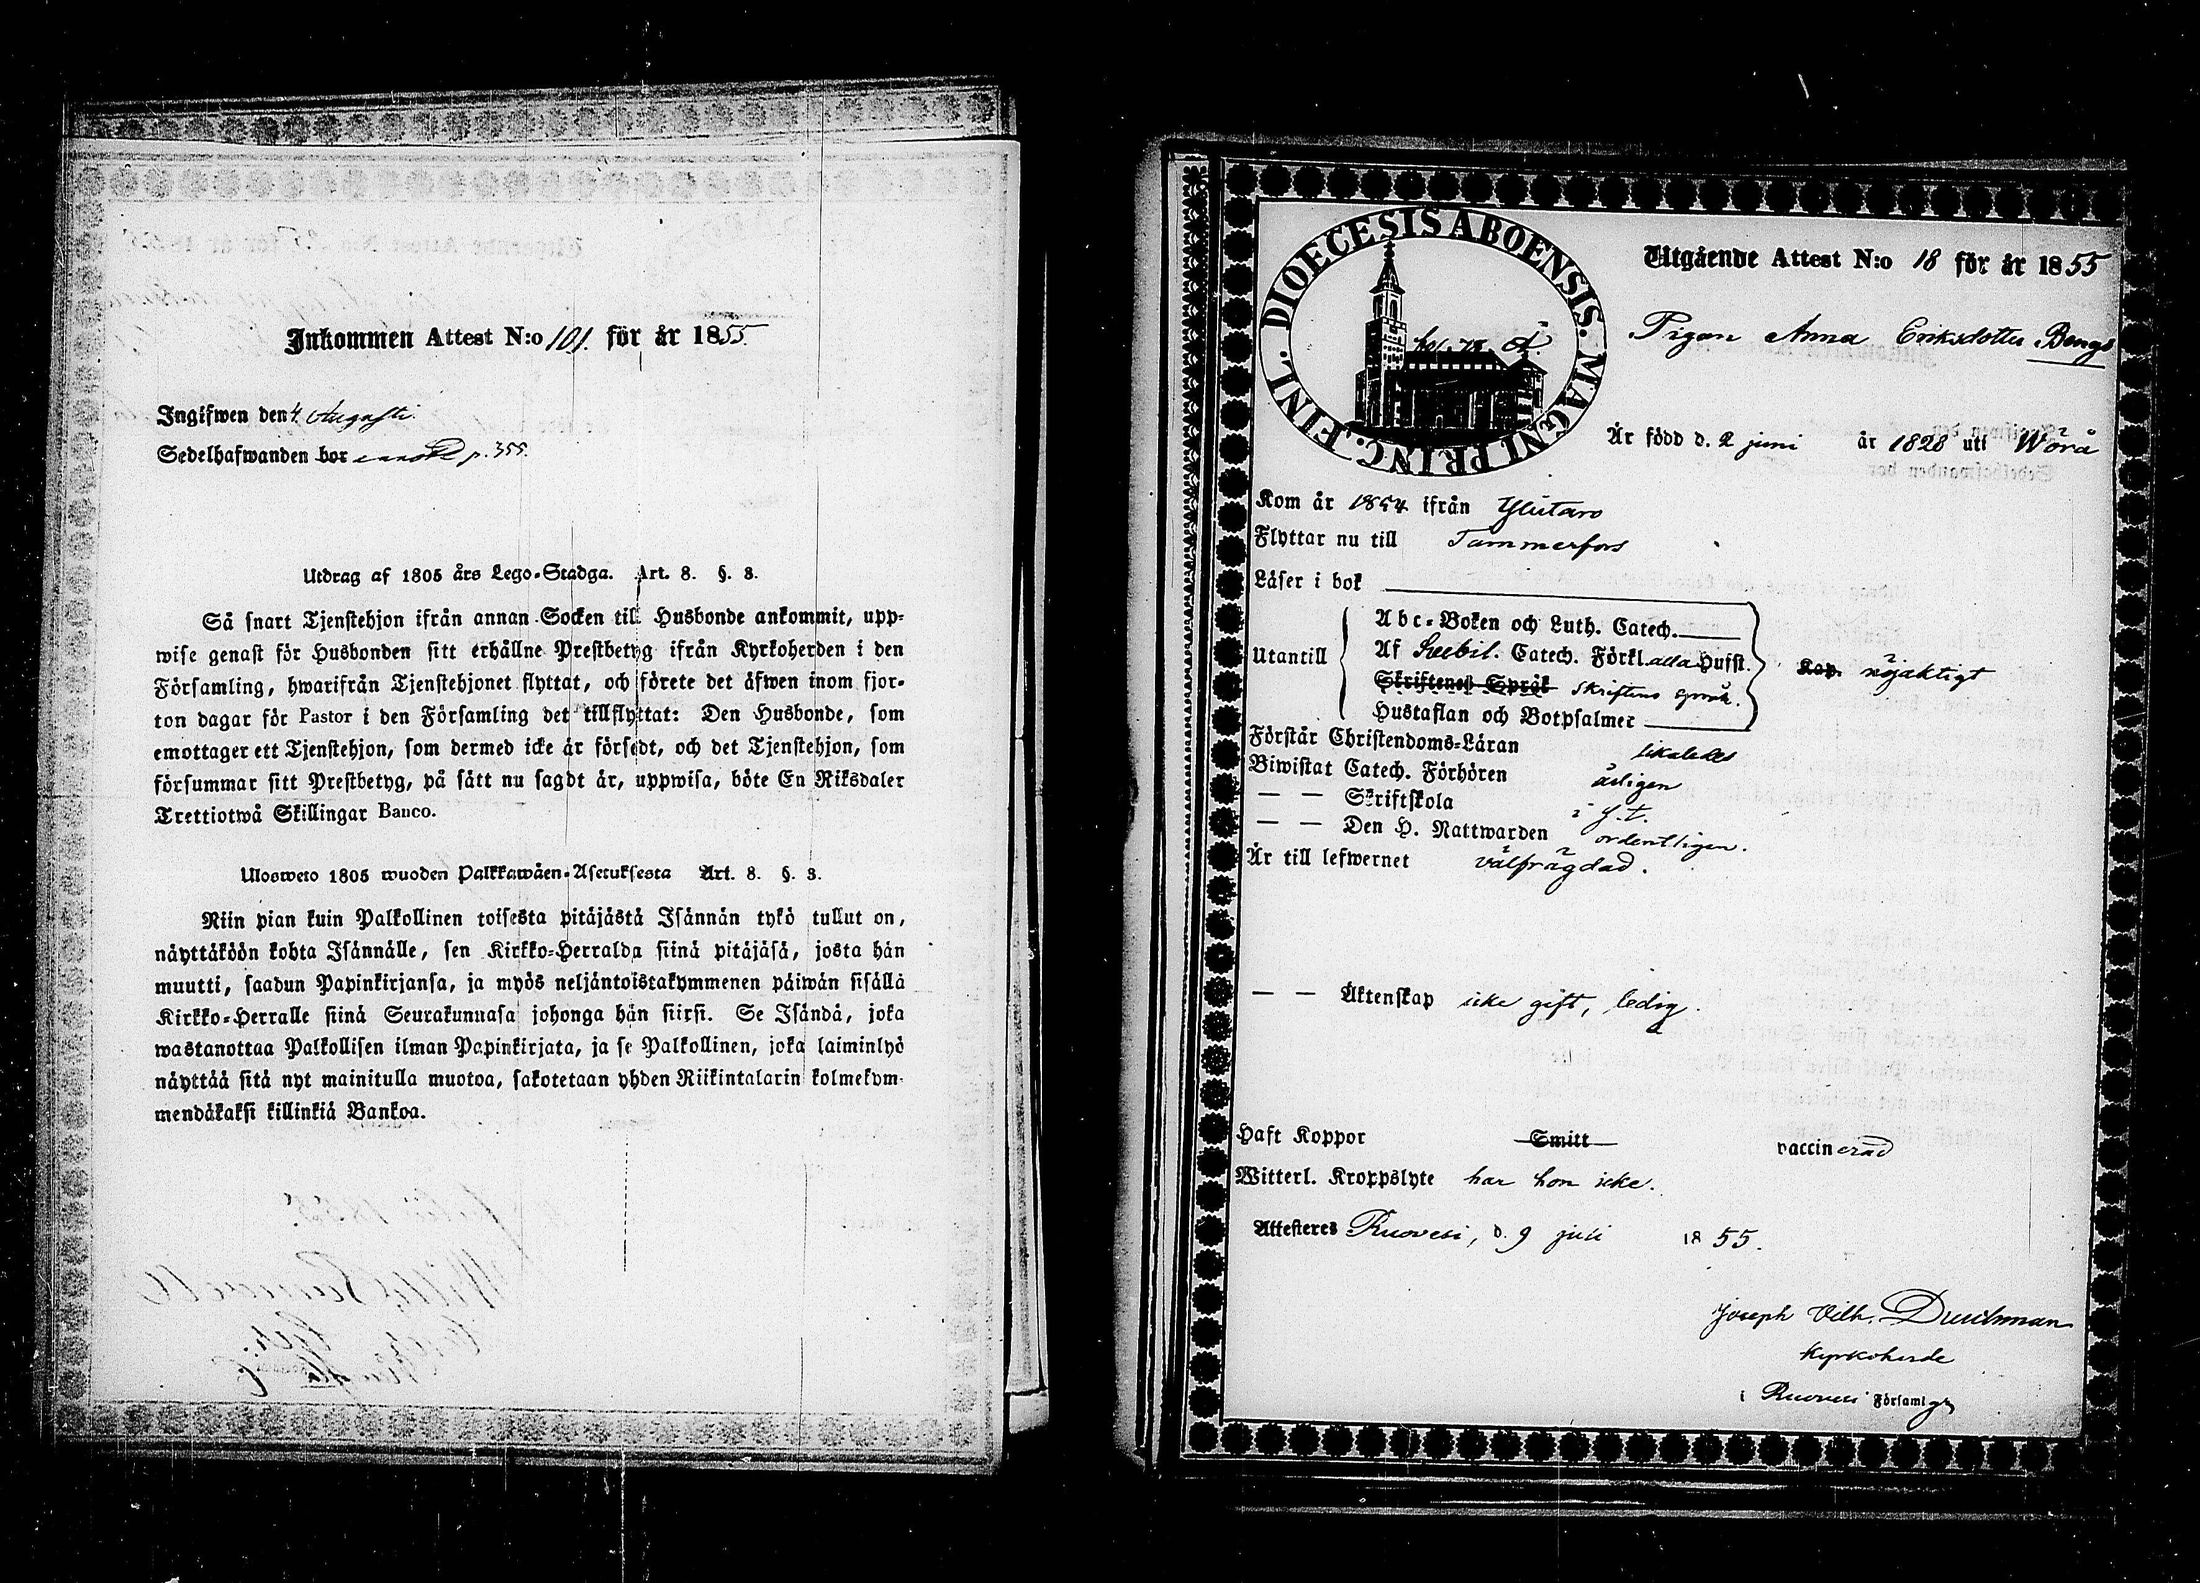 Inkommen Attest N:o 101. för år 1855.
Ingifwen den 4. Augusti.
Sedelhafwanden bor p. 355.
Utdrag af 1805 års Lego-Stadga. Art. 8. §. 3.
Så snart Tjenstehjon ifrån annan Socken till Husbonde ankommit, upp-
wise genast för Husbonden sitt erhållne Prestbetyg ifrån Kyrkoherden i den
Församling, hwarifrån Tjenstehjonet flyttat, och förete det äfwen inom fjor-
ton dagar för Pastor i den Församling det tillflyttat: Den Husbonde, som
emottager ett Tjenstehjon, som dermed icke är försedt, och det Tjenstehjon, som
försummar sitt Prestbetyg, på sätt nu sagdt är, uppwisa, böte En Riksdaler
Trettiotwå Skillingar Banco.
Ulosweto 1805 wuoden Palkkawäen-Asetuksesta Art. 8. §. 3.
Niin pian kuin Palkollinen toisesta pitäjästä Isännän tykö tullut on,
näyttäköön kohta Isännälle, sen Kirkko-Herralda siinä pitäjäsä, josta hän
muutti, saadun Papinkirjansa, ja myös neljäntoistakymmenen päiwän sisällä
Kirkko-Herralle siinä Seurakunnasa johonga hän siirsi. Se Isändä, joka
wastanottaa Palkollisen ilman Papinkirjata, ja se Palkollinen, joka laiminlyö
näyttää sitä nyt mainitulla muotoa, sakotetaan yhden Riikintalarin kolmekym-
mendäkaksi killinkiä Bankoa.
DIOECESIS ABOENSIS. MAGNI PRINC. FINL.
Utgående Attest N:o 18 för år 1855
Pigan Anna Eriksdotter Bengs
Är född d. 2 juni år 1828 uti Wörå
Kom år 1854 ifrån Ylistaro
Flyttar nu till Tammerfors
Läser i bok
Utantill
Abc-Boken och Luth. Catech.
Af Svebil. Catech. Förkl. alla Hufst.
Skriftenes Språk skriftens språk.
Hustaflan och Botpsalmer
Kap. nöjaktigt
Förstår Christendoms-Läran likaledes
Biwistat Catech. Förhören årligen
— — Skriftskola i y. t.
— — Den H. Nattwarden ordentligen.
Är till lefwernet välfrägdad.
— — Äktenskap icke gift, ledig.
Haft Koppor Smitt vaccinerad
Witterl. Kroppslyte har hon icke.
Attesteres Ruovesi, d. 9 juli 1855.
Joseph Vilh. Durchman
Kyrkoherde
i Ruovesi Församlg